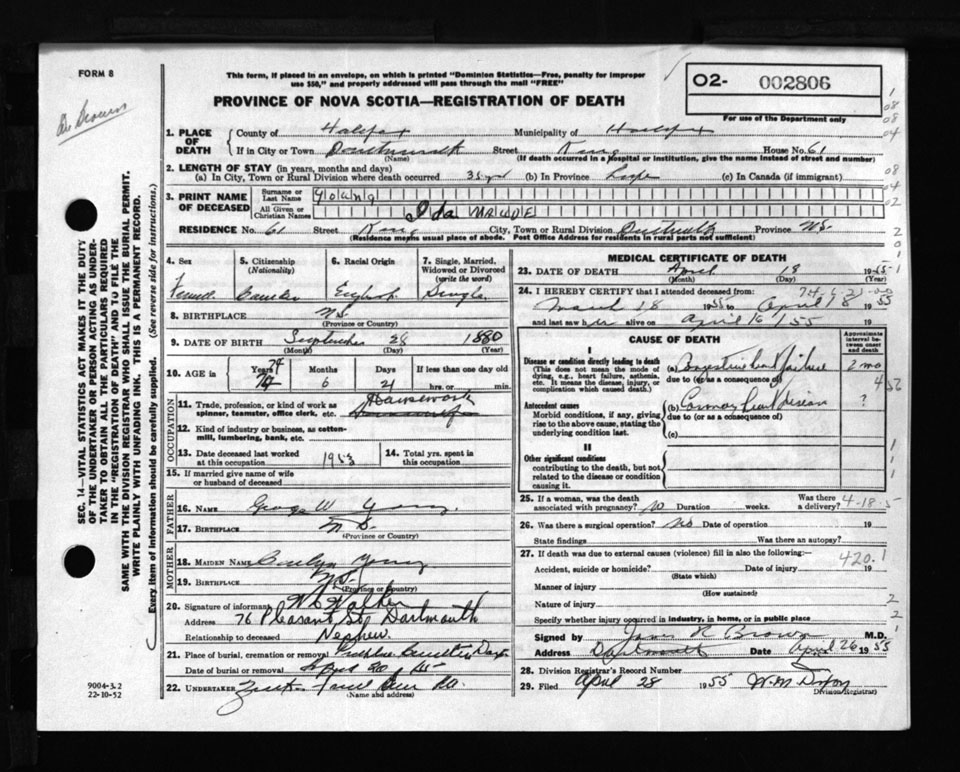 FORM 8
This form, if placed in an envelope, on which is printed "Dominion Statistics—Free, penalty for improper
use $50," and properly addressed will pass through the mail "FREE"
PROVINCE OF NOVA SCOTIA—REGISTRATION OF DEATH
O2- 002806
For use of the Department only
Dr Brown
SEC. 14—VITAL STATISTICS ACT MAKES IT THE DUTY
OF THE UNDERTAKER OR PERSON ACTING AS UNDER-
TAKER TO OBTAIN ALL THE PARTICULARS REQUIRED
IN THE "REGISTRATION OF DEATH" AND TO FILE THE
SAME WITH THE DIVISION REGISTRAR WHO SHALL ISSUE THE BURIAL PERMIT.
WRITE PLAINLY WITH UNFADING INK. THIS IS A PERMANENT RECORD.
Every item of information should be carefully supplied. (See reverse side for instructions.)
1. PLACE OF DEATH County of Halifax Municipality of Halifax
If in City or Town Dartmouth Street King House No. 61
(Name) (If death occurred in a hospital or institution, give the name instead of street and number)
2. LENGTH OF STAY (in years, months and days)
(a) In City, Town or Rural Division where death occurred 35 yrs (b) In Province Life (c) In Canada (if immigrant)
3. PRINT NAME OF DECEASED Surname or Last Name Young
All Given or Christian Names Ida Maude
RESIDENCE No. 61 Street King City, Town or Rural Division Dartmouth Province N.S.
(Residence means usual place of abode. Post Office Address for residents in rural parts not sufficient)
4. Sex 5. Citizenship (Nationality) 6. Racial Origin 7. Single, Married, Widowed or Divorced (write the word)
Female Canadian English Single
8. BIRTHPLACE N.S.
(Province or Country)
9. DATE OF BIRTH September 28 1880
(Month) (Day) (Year)
10. AGE in Years Months Days If less than one day
74 6 21 hrs. or min.
OCCUPATION
11. Trade, profession, or kind of work as spinner, teamster, office clerk, etc. Housework
12. Kind of industry or business, as cotton-mill, lumbering, bank, etc.
13. Date deceased last worked at this occupation 1953 14. Total yrs. spent in this occupation
15. If married give name of wife or husband of deceased
FATHER
16. Name George W Young
17. Birthplace N.S.
(Province or Country)
MOTHER
18. Maiden Name Young
19. Birthplace N.S.
(Province or Country)
20. Signature of informant Walker
Address 76 Pleasant St Dartmouth
Relationship to deceased Nephew.
21. Place of burial, cremation or removal Cemetery Dart
Date of burial or removal April 20
22. UNDERTAKER
(Name and address)
9004-3.2
22-10-52
MEDICAL CERTIFICATE OF DEATH
23. DATE OF DEATH April 18 1955
(Month) (Day)
24. I HEREBY CERTIFY that I attended deceased from:
March 18 1955 April 18 1955
and last saw her alive on April 16 1955
CAUSE OF DEATH
Approximate interval between onset and death
I
Disease or condition directly leading to death
(This does not mean the mode of dying, e.g., heart failure, asthenia, etc. It means the disease, injury, or complication which caused death.)
(a) Congestive heart failure 2 mo
due to (or as a consequence of)
Antecedent causes
Morbid conditions, if any, giving rise to the above cause, stating the underlying condition last.
(b) Coronary heart disease ?
due to (or as a consequence of)
(c)
II
Other significant conditions
contributing to the death, but not related to the disease or condition causing it.
25. If a woman, was the death associated with pregnancy? No Duration weeks. Was there a delivery?
4-18-5
26. Was there a surgical operation? No Date of operation 19
State findings Was there an autopsy?
27. If death was due to external causes (violence) fill in also the following:—
420.1
Accident, suicide or homicide? Date of injury 19
(State which)
Manner of injury
(How sustained)
Nature of injury
Specify whether injury occurred in industry, in home, or in public place
Signed by James R Brown M.D.
Address Dartmouth Date April 26 1955
28. Division Registrar's Record Number
29. Filed April 28 1955 W.M. Dixon
Division Registrar)